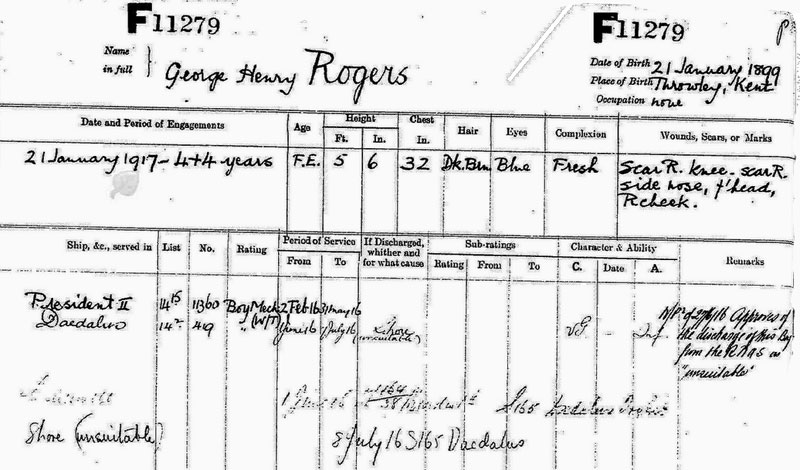 F11279
F11279
Name in full } George Henry Rogers
Date of Birth 21 January 1899
Place of Birth Throwley, Kent
Occupation none
Date and Period of Engagements Age Height Ft. In. Chest In. Hair Eyes Complexion Wounds, Scars, or Marks
21 January 1917 - 4+4 years F.E. 5 6 32 Dk. Brn Blue Fresh Scar R. knee - scar R.
side nose, f'head,
R cheek.
Ship, &c., served in List No. Rating Period of Service From To If Discharged, whether and for what cause Sub-ratings Rating From To Character & Ability C. Date A. Remarks
President II 14 11360 Boy Mech 2 Feb 16 31 May 16
Daedalus 14 419 " (W/T) June 16 July 16 Shore (unsuitable) VG - Inf.
Approves of
the discharge of this Boy
from the RNAS as
"unsuitable"
1 June 16
Shore (unsuitable) 8 July 16 S165 Daedalus